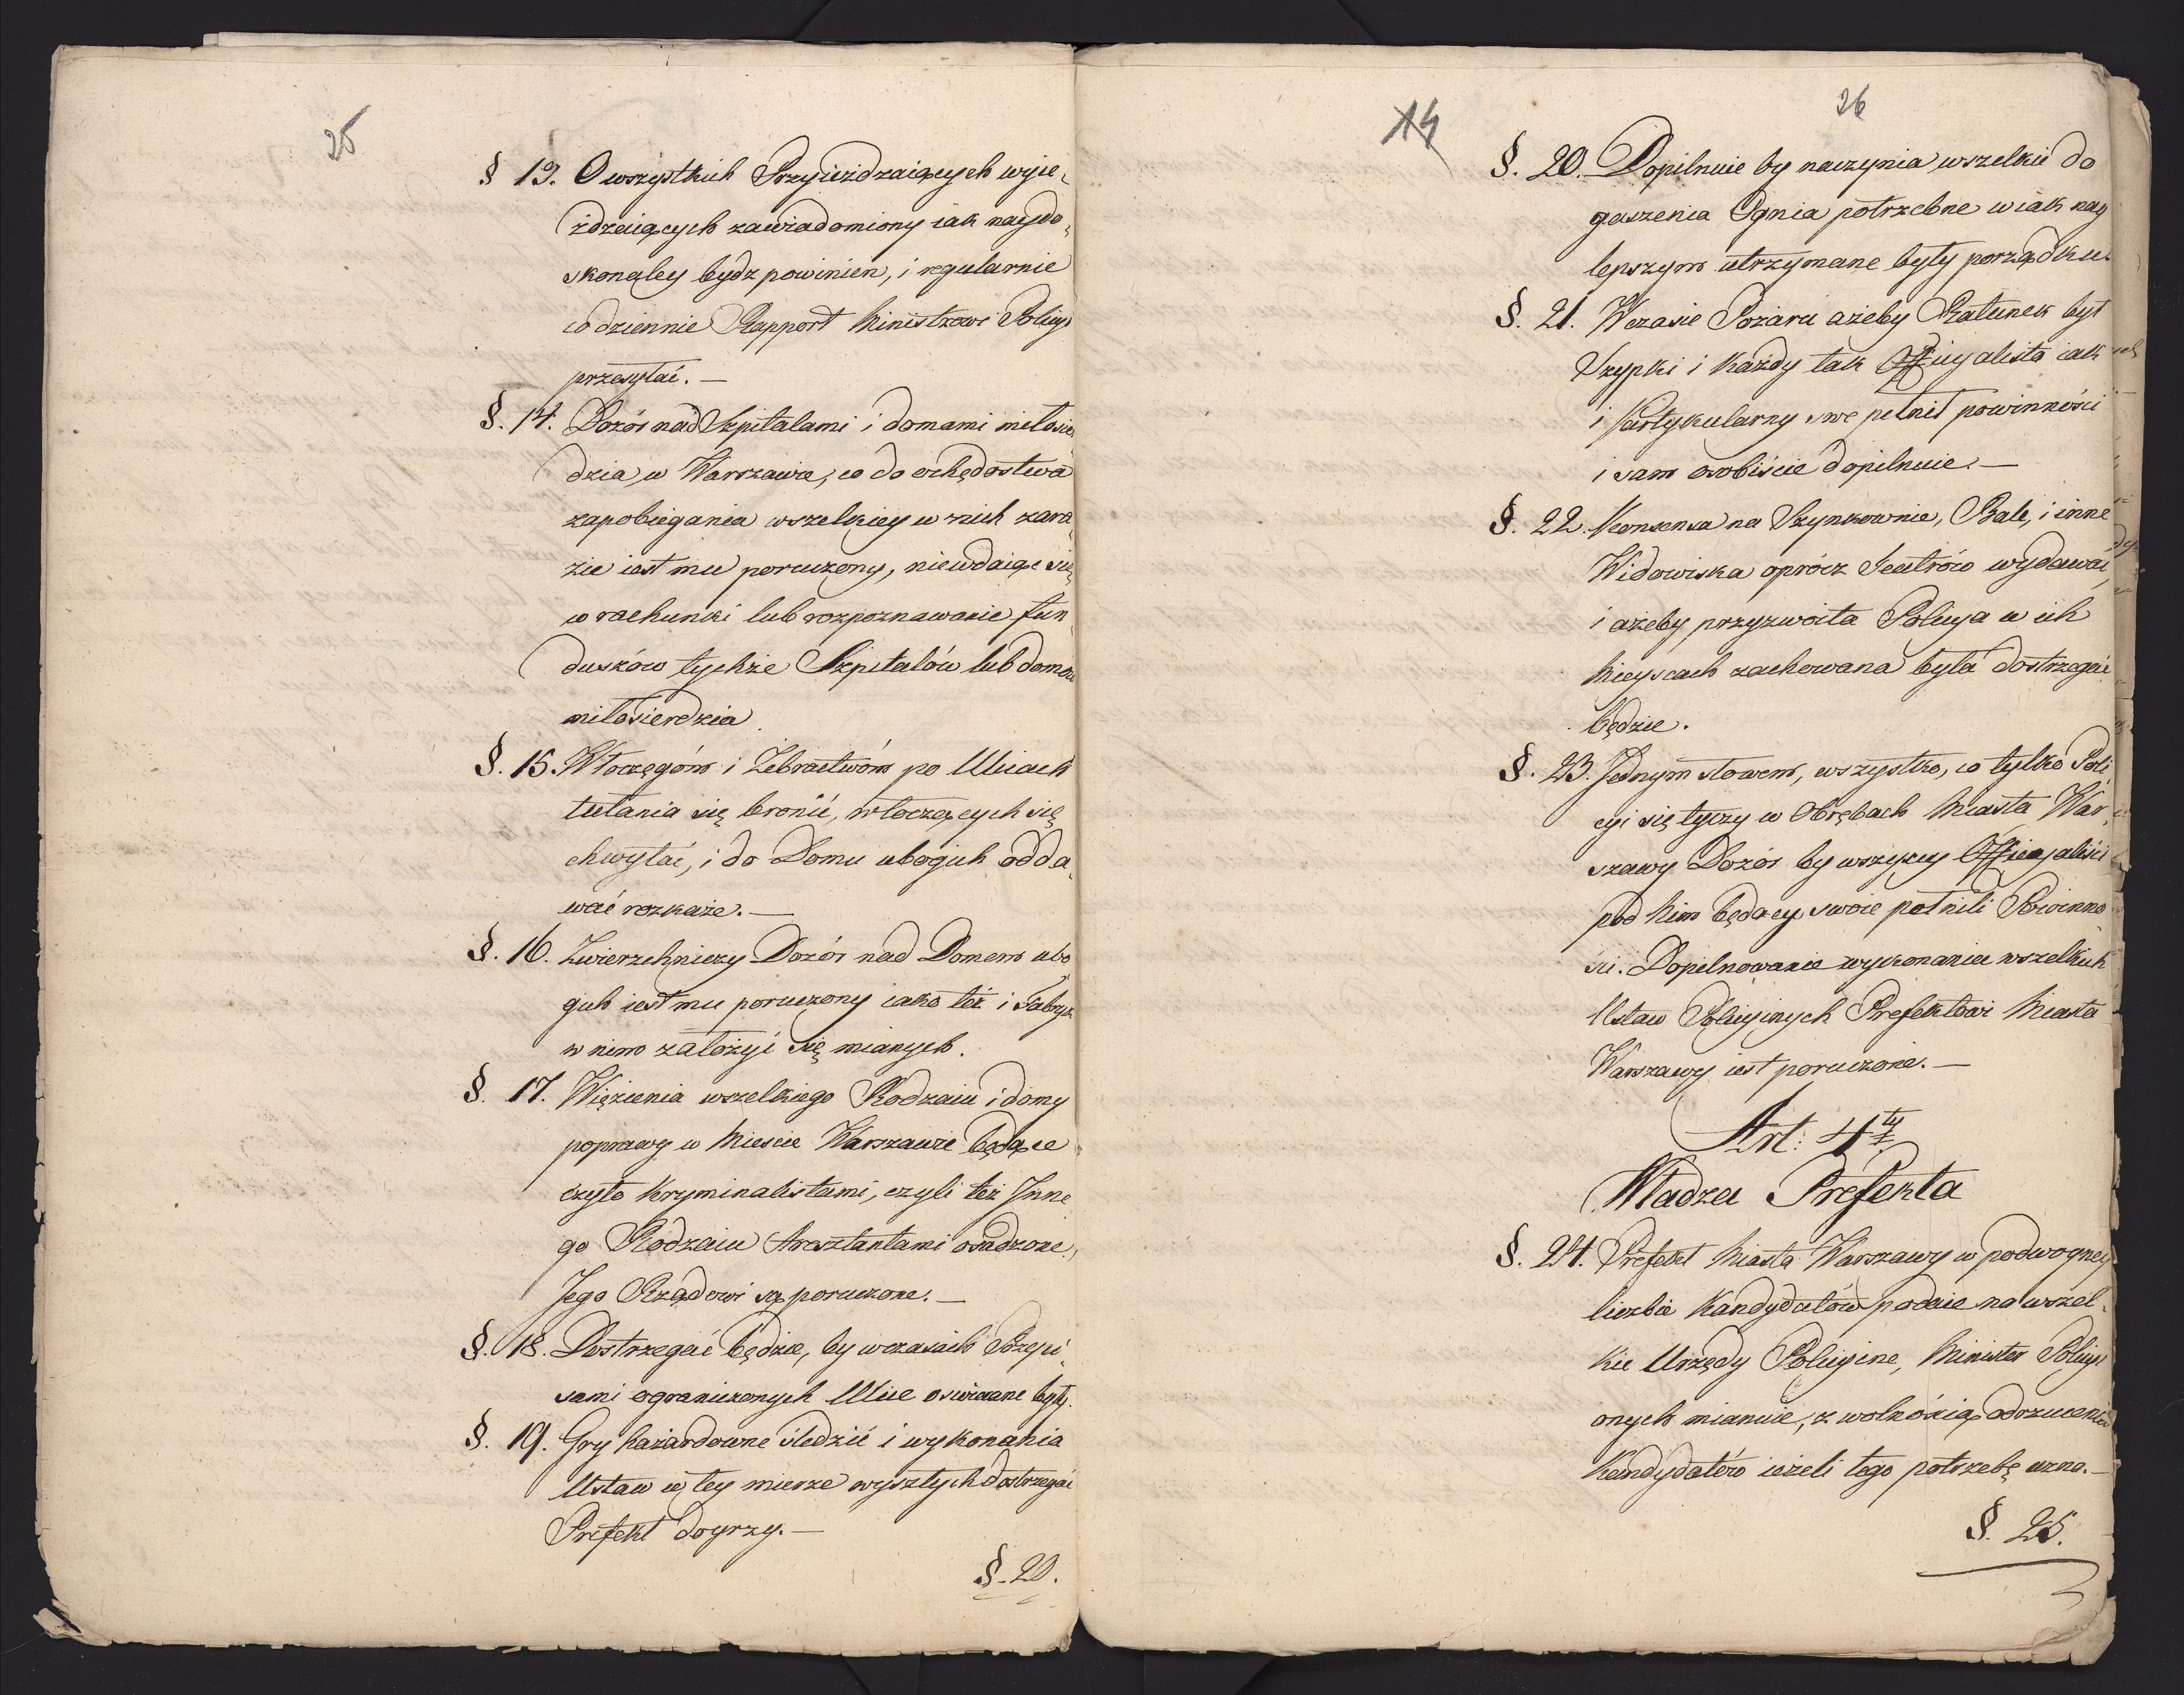 25
§ 13. O wszystkich Przyieżdzaiących wyie„
żdzaiących zawiadomiony iak naydo„
skonaley bydz powinien, i regularnie
codziennie Rapport Ministrowi Policyi
przesyłać. —
§. 14. Dozór nad Szpitalami i domami miłosier
dzia w Warszawie, co do ochędostwa
zapobiegania wszelkiey w nich zara„
zie iest mu poruczony, niewdaiąc się
w rachunki lub rozpoznawanie fun„
duszów tychże Szpitalów lub domów
miłosierdzia
§. 15. Włoczęgóm i Żebractwóm po Ulicach
tułania się bronić, włoczących się
chwytać, i do Domu ubogich odda„
wać rozkaże. —
§. 16. Zwierzchniczy Dozór nad Domem ubo
gich iest mu poruczony iako też i Fabryk
w nim założyć się mianych.
§. 17. Więzienia wszelkiego Rodzaiu i domy
poprawy w Mieście Warszawie będące
czyto Kryminalistami, czyli też Inne
go Rodzaiu Aresztantami osadzone,
Jego Rządowi są poruczone. —
§. 18. Dostrzegać będzie, by wczasach Przepi„
sami ograniczonych Ulice oswiecane były.
§. 19. Gry hazardowne śledzić i wykonania
Ustaw w tey mierze wyszłych dostrzegać
Prefekt doyrzy. —
§. 20.
14
26
§. 20. Dopilnuie by naczynia wszelkie do
gaszenia Ognia potrzebne w iak nay
lepszym utrzymane były porządku.
§. 21. Wczasie Pożaru ażeby Ratunek był
Szypki i Każdy tak Officyalista iak
i Partykularny swe pełnił powinności
i sam osobiście dopilnuie. —
§. 22. Konsensa na Szynkownie, Bale, i inne
Widowiska oprócz Teatrów wydawać,
i ażeby przyzwoita Policya w ich
Mieyscach zachowana była dostrzegać
będzie.
§. 23. Jednym słowem, wszystko, co tylko Poli
cyi się tyczy w Obrębach Miasta War„
szawy Dozór by wszyscy Officyaliści
pod Nim będący swoie pełnili Powinno„
ści. Dopilnowanie wykonania wszelkich
Ustaw Policyinych Prefektowi Miasta
Warszawy iest poruczone. —
Art: 4ty
Władza Prefekta
§. 24. Prefekt Miasta Warszawy w podwoyney
liczbie Kandydatów podaie na wszel„
kie Urzędy Policyine, Minister Policyi
onych mianuie, z wolnością odrzucenia
Kandydatów ieżeli tego potrzebę uzna. —
§. 25.